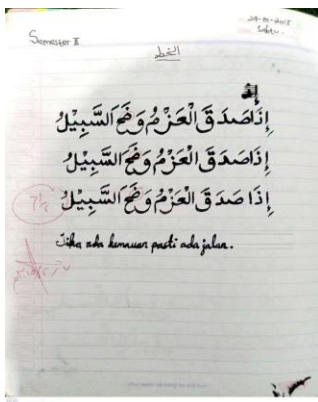 Semester II
الخط
إِذَا صَدَقَ الْعَزْمُ وَضَحَ السَّبِيْلُ
إِذَا صَدَقَ الْعَزْمُ وَضَحَ السَّبِيْلُ
إِذَا صَدَقَ الْعَزْمُ وَضَحَ السَّبِيْلُ
Jika ada kemauan pasti ada jalan.